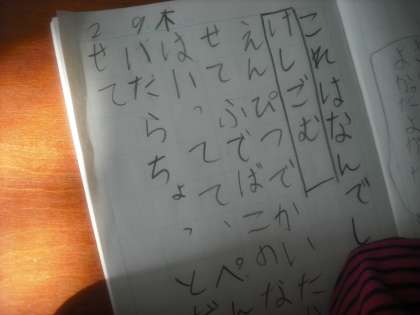 木
9.
2
これはなんでし
けしごむ
えんぴつでかいた
せてふでばこのな
はいってて、ペ
いだらちょっと
せて